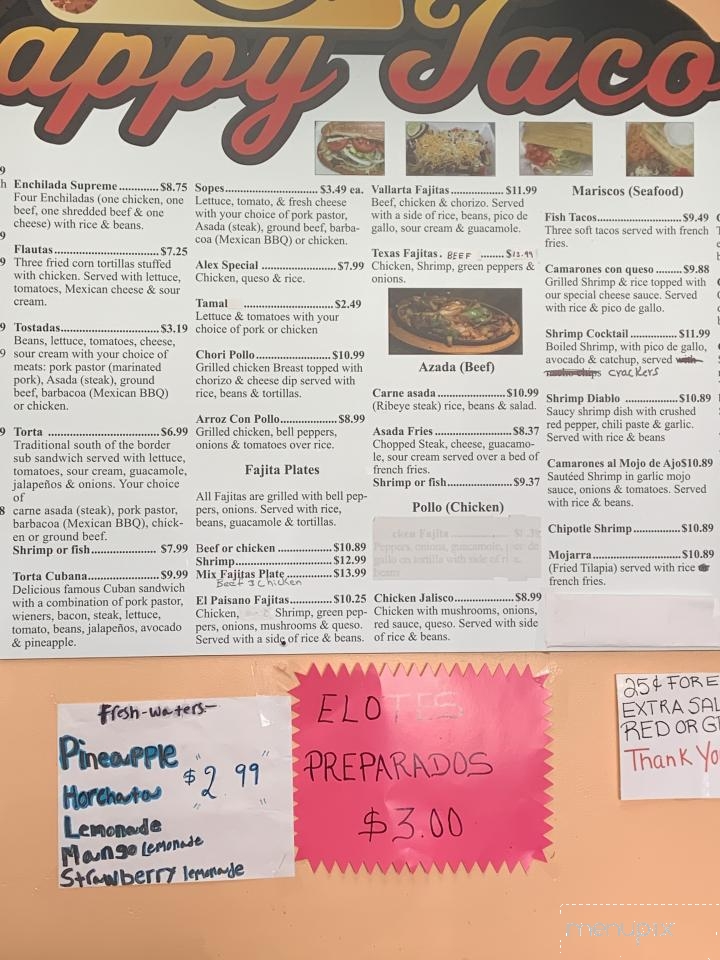 appy Taco
Enchilada Supreme.............$8.75
Four Enchiladas (one chicken, one
beef, one shredded beef & one
cheese) with rice & beans.
Flautas................................$7.25
Three fried corn tortillas stuffed
with chicken. Served with lettuce,
tomatoes, Mexican cheese & sour
cream.
Tostadas..............................$3.19
Beans, lettuce, tomatoes, cheese,
sour cream with your choice of
meats: pork pastor (marinated
pork), Asada (steak), ground
beef, barbacoa (Mexican BBQ)
or chicken.
Torta ..................................$6.99
Traditional south of the border
sub sandwich served with lettuce,
tomatoes, sour cream, guacamole,
jalapeños & onions. Your choice
of
carne asada (steak), pork pastor,
barbacoa (Mexican BBQ), chick-
en or ground beef.
Shrimp or fish..................... $7.99
Torta Cubana......................$9.99
Delicious famous Cuban sandwich
with a combination of pork pastor,
wieners, bacon, steak, lettuce,
tomato, beans, jalapeños, avocado
& pineapple.
Sopes.............................. $3.49 ea.
Lettuce, tomato, & fresh cheese
with your choice of pork pastor,
Asada (steak), ground beef, barba-
coa (Mexican BBQ) or chicken.
Alex Special .........................$7.99
Chicken, queso & rice.
Tamal ...........................$2.49
Lettuce & tomatoes with your
choice of pork or chicken
Chori Pollo.........................$10.99
Grilled chicken Breast topped with
chorizo & cheese dip served with
rice, beans & tortillas.
Arroz Con Pollo..................$8.99
Grilled chicken, bell peppers,
onions & tomatoes over rice.
Fajita Plates
All Fajitas are grilled with bell pep-
pers, onions. Served with rice,
beans, guacamole & tortillas.
Beef or chicken ..................$10.89
Shrimp................................$12.99
Mix Fajitas Plate................$13.99
Beef & Chicken
El Paisano Fajitas...............$10.25
Chicken, Shrimp, green pep-
pers, onions, mushrooms & queso.
Served with a side of rice & beans.
Vallarta Fajitas..................$11.99
Beef, chicken & chorizo. Served
with a side of rice, beans, pico de
gallo, sour cream & guacamole.
Texas Fajitas. BEEF ........$13.99
Chicken, Shrimp, green peppers &
onions.
Azada (Beef)
Carne asada .....................$10.99
(Ribeye steak) rice, beans & salad.
Asada Fries.........................$8.37
Chopped Steak, cheese, guacamo-
le, sour cream served over a bed of
french fries.
Shrimp or fish....................$9.37
Pollo (Chicken)
Chicken Jalisco...................$8.99
Chicken with mushrooms, onions,
red sauce, queso. Served with side
of rice & beans.
Mariscos (Seafood)
Fish Tacos.........................$9.49
Three soft tacos served with french
fries.
Camarones con queso ........$9.88
Grilled Shrimp & rice topped with
our special cheese sauce. Served
with rice & pico de gallo.
Shrimp Cocktail ...............$11.99
Boiled Shrimp, with pico de gallo,
avocado & catchup, served with
nacho chips crackers
Shrimp Diablo ..................$10.89
Saucy shrimp dish with crushed
red pepper, chili paste & garlic.
Served with rice & beans
Camarones al Mojo de Ajo$10.89
Sautéed Shrimp in garlic mojo
sauce, onions & tomatoes. Served
with rice & beans.
Chipotle Shrimp................$10.89
Mojarra.............................$10.89
(Fried Tilapia) served with rice
french fries.
Fresh-waters-
Pineapple
Horchata
$2.99
Lemonade
Mango lemonade
Strawberry lemonade
ELOTES
PREPARADOS
$3.00
25¢ FOR E
EXTRA SAL
RED OR GR
Thank You
menupix